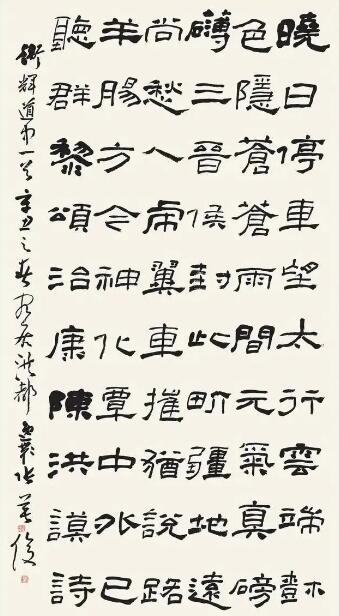 曉日停車望太行雲端
色隱蒼蒼雨間元氣真磅
礴三晉侯封此町疆地遠
尚愁人虎翼車摧猶說路
羊腸方今神化覃中外已
聽群黎頌治康陳洪謨詩
衛輝道中一首辛丑之春洪都